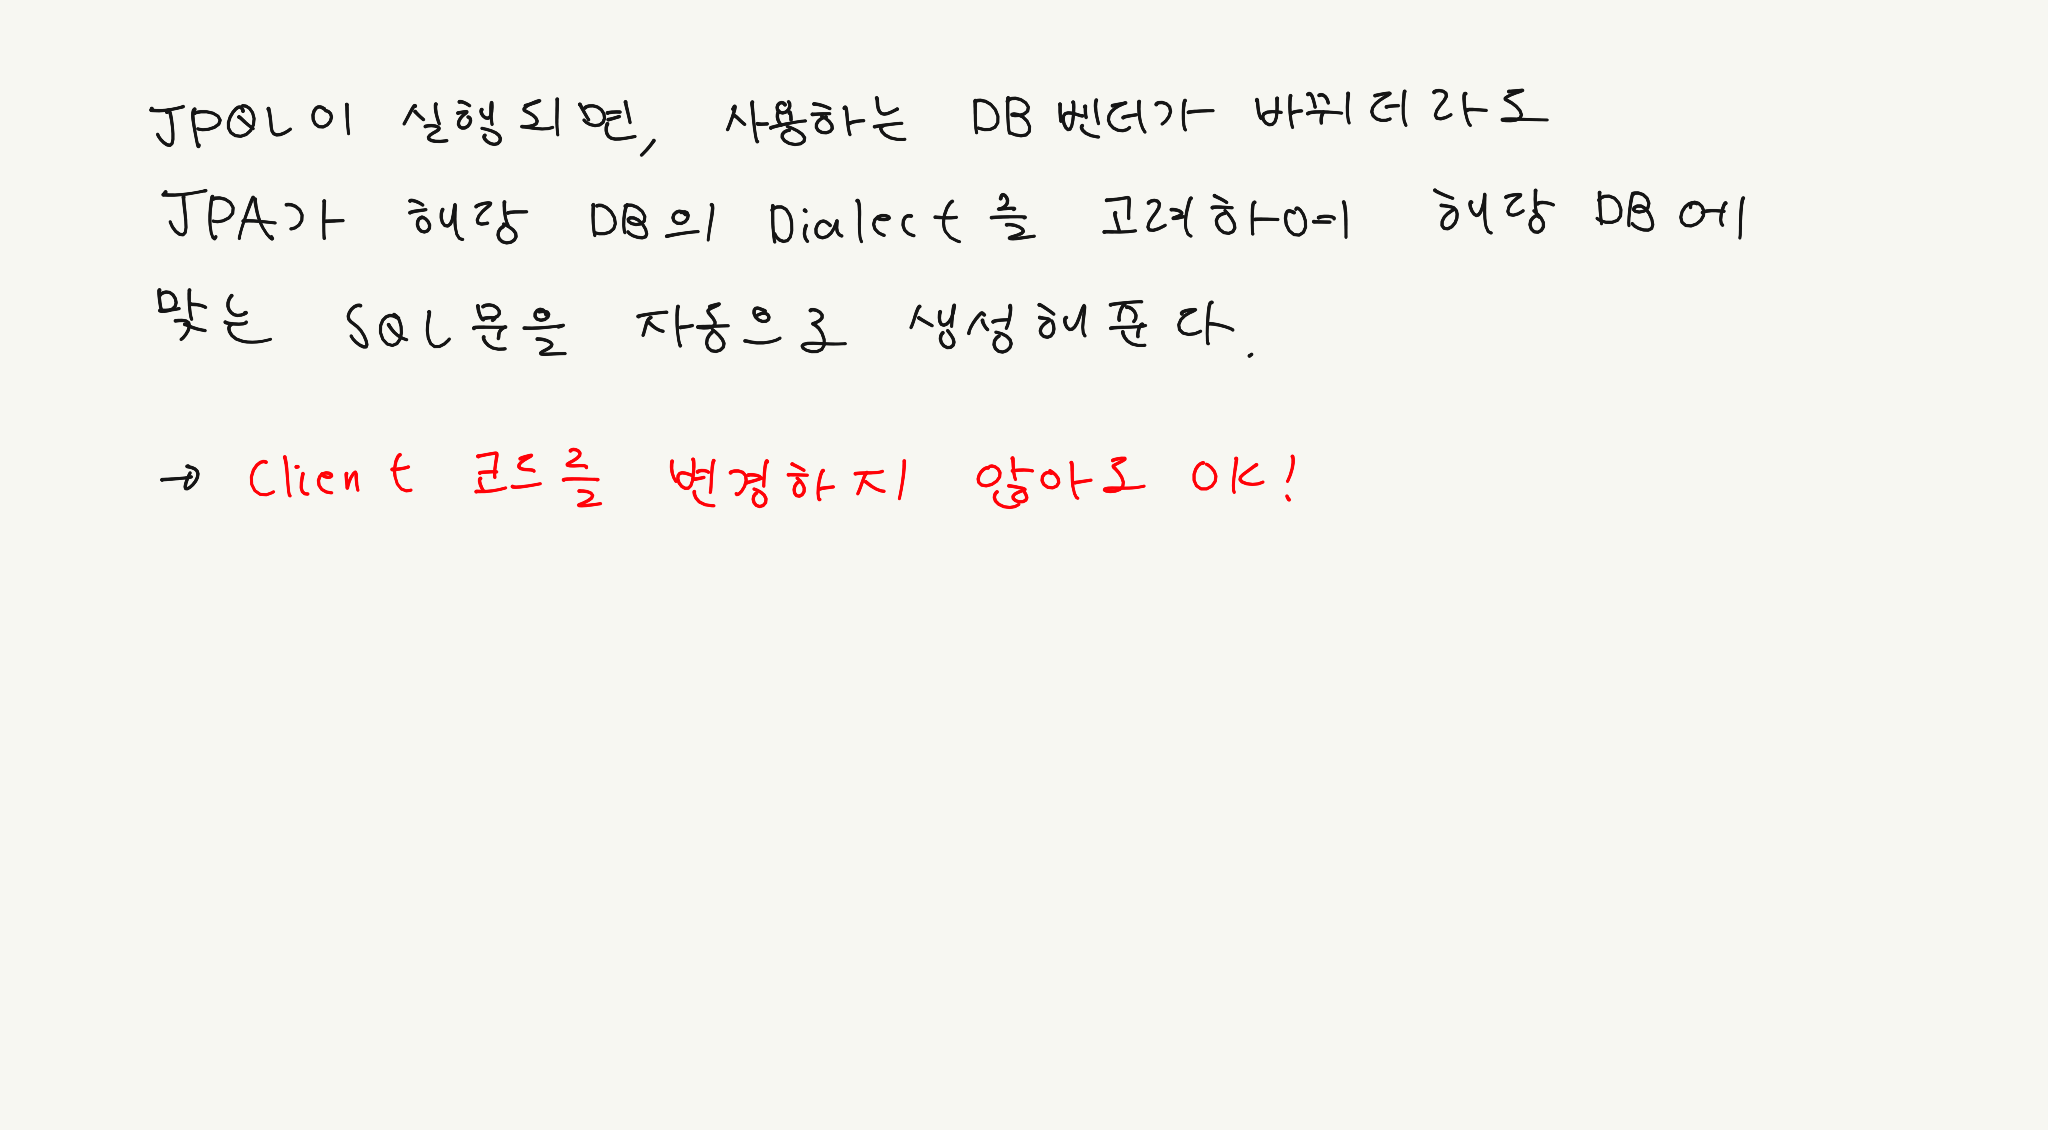 JPQL이 실행되면, 사용하는 DB 벤더가 바뀌더라도
JPA가 해당 DB의 Dialect를 고려하에 해당 DB에
맞는 SQL문을 자동으로 생성해준다.
→ Client 코드를 변경하지 않아도 OK!